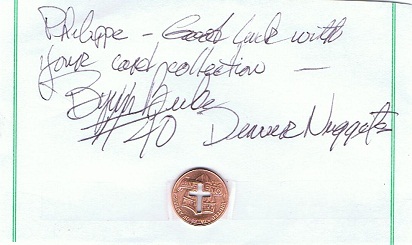 Philippe - Good luck with
your card collection -
#40 Denver Nuggets